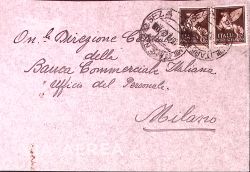 On.le Direzione Ce
della
Banca Commerciale Italiana
Ufficio del Personale
Milano